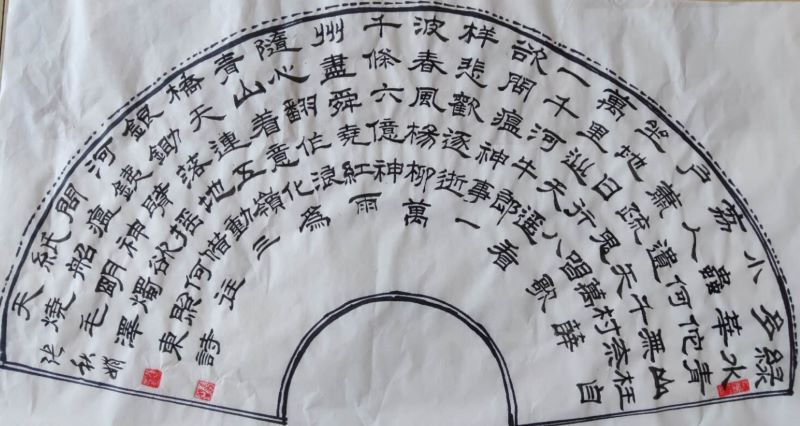 綠水青山枉自
多華佗無奈
小蟲何千村薜
荔人遺矢萬
戶蕭疏鬼唱歌
坐地日行八
萬里巡天遥看
一千河牛郎
欲問瘟神事一
样悲歡逐逝
波春風楊柳萬
千條六億神
州盡舜堯紅雨
隨心翻作浪
青山着意化爲
橋天連五嶺
銀鋤落地動三
河鐵臂摇借
問瘟神欲何往
紙船明燭照
天燒毛澤東詩
张秋娟